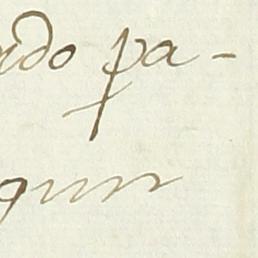 ndo pa-
gun